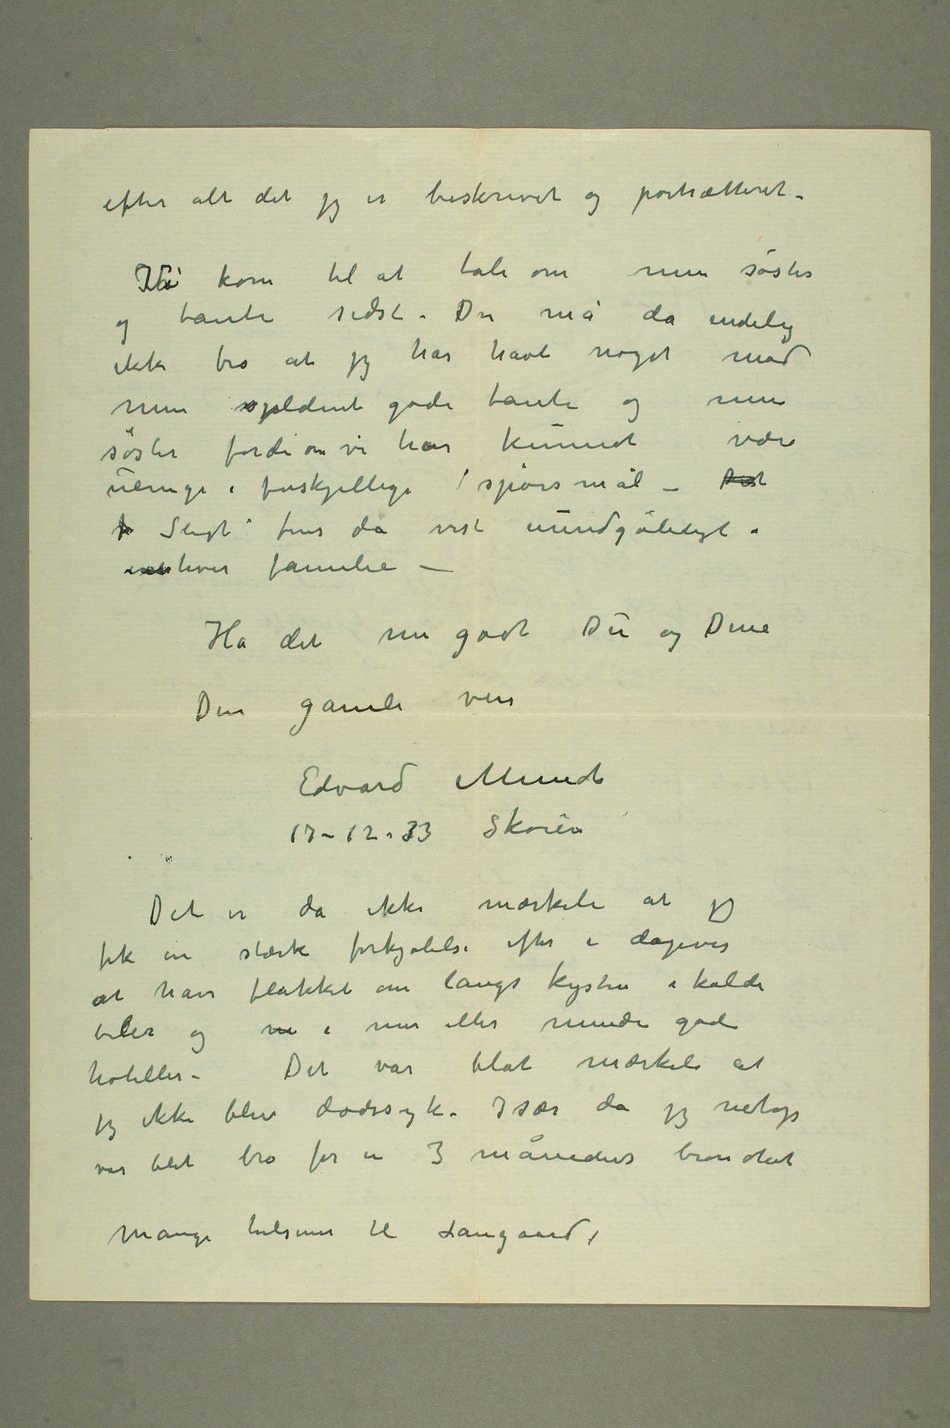 efter alt det jeg er beskrevet og portrætteret –
Vi kom til at tale om min søster
og tante sidst. Du må da endelig
ikke tro at jeg har havt noget mod
min sjeldent gode tante og min
søster fordi om vi har kunnet være
uenige i forskjellige spørsmål –
Sligt fins da vist uundgåeligt i
hver familie –
Ha det nu godt Du og Dine
Din gamle ven
Edvard Munch
17-12-33 Skøien
Det er da ikke mærkeli at jeg
fik en stærk forkjølelse efter i dagevis
at have flakket om langs kysten i kolde
biler og i mer eller mindre gode
hoteller – Det var blot mærkeli at
jeg ikke blev dødssyk. Især da jeg netop
var blit bra for en 3 måneders bronchit
Mange hilsener til Langaard,